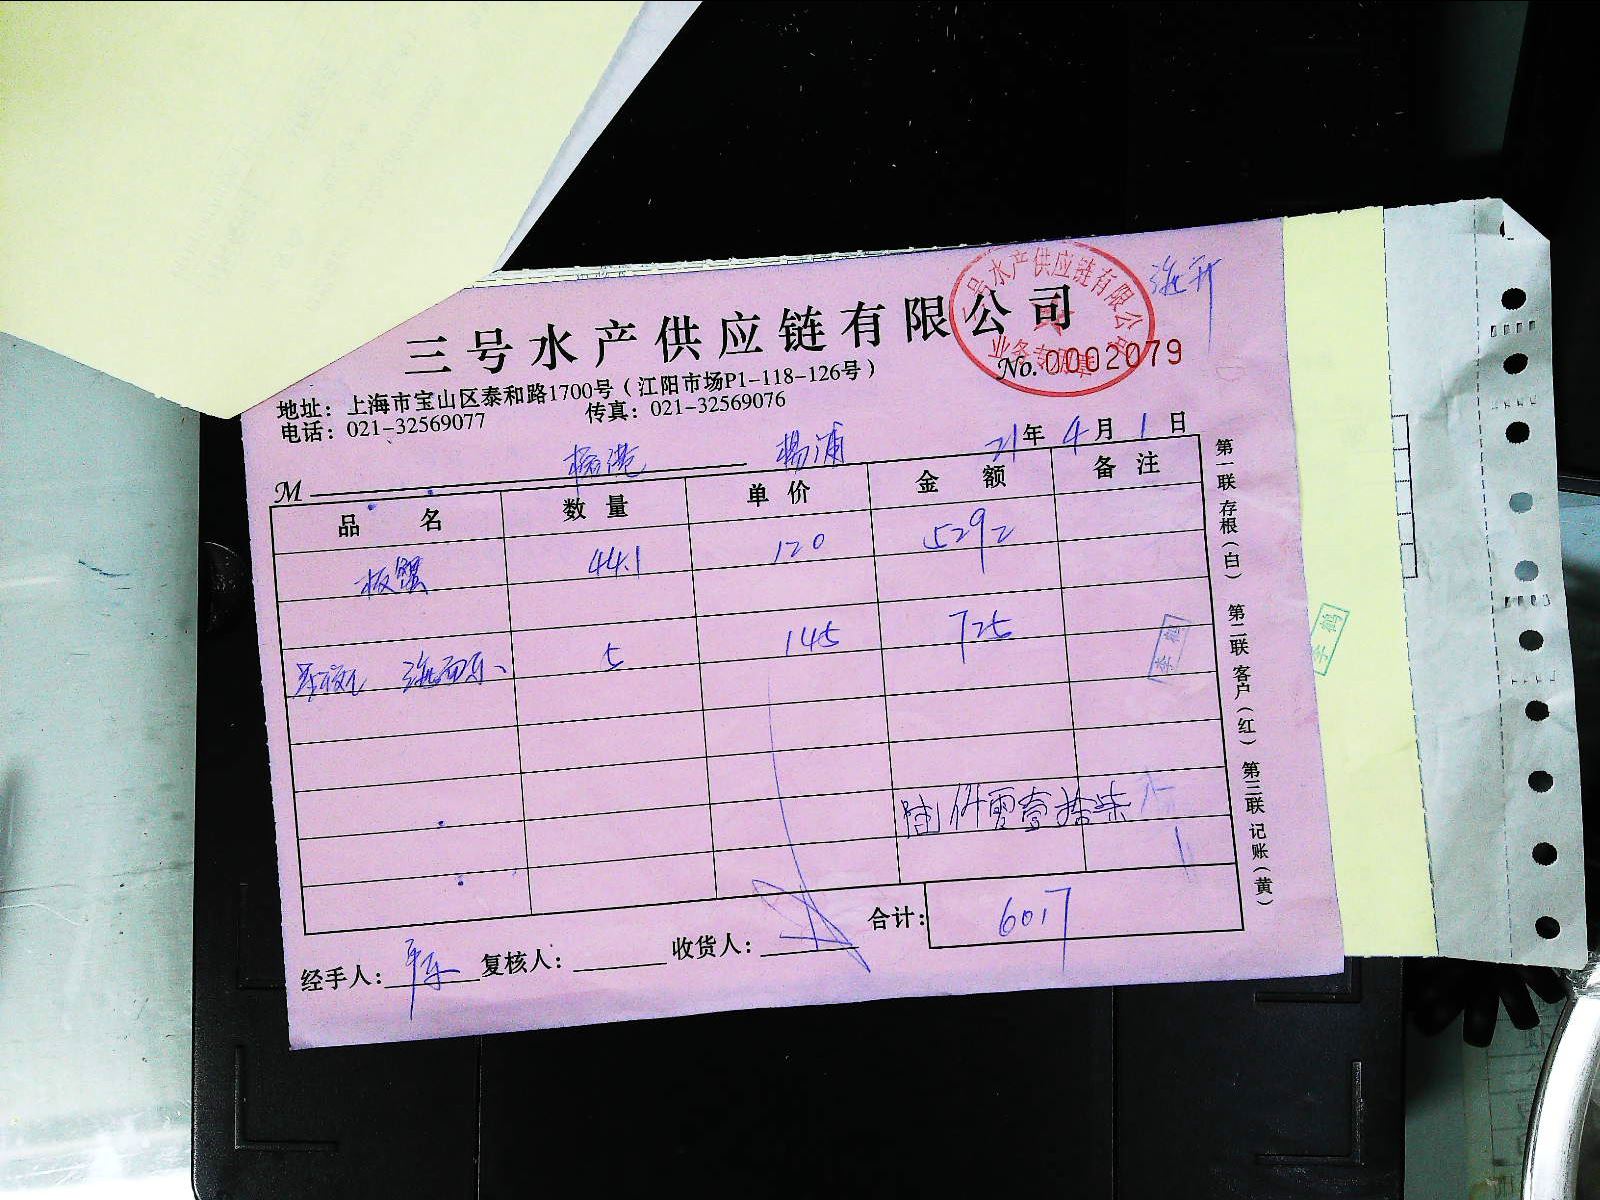 三号水产供应链有限公司
三号水产供应链有限公司
业务专用章
No. 0002079
地址：上海市宝山区泰和路1700号（江阳市场P1-118-126号）
电话：021-32569077 传真：021-32569076
杨浦 21年4月1日
M
品名 数量 单价 金额 备注
板蟹 44.1 120 5292
5 145 725
李鹤
李鹤
陆仟零壹拾柒
合计： 6017
经手人： 复核人： 收货人：
第一联 存根（白） 第二联 客户（红） 第三联 记账（黄）